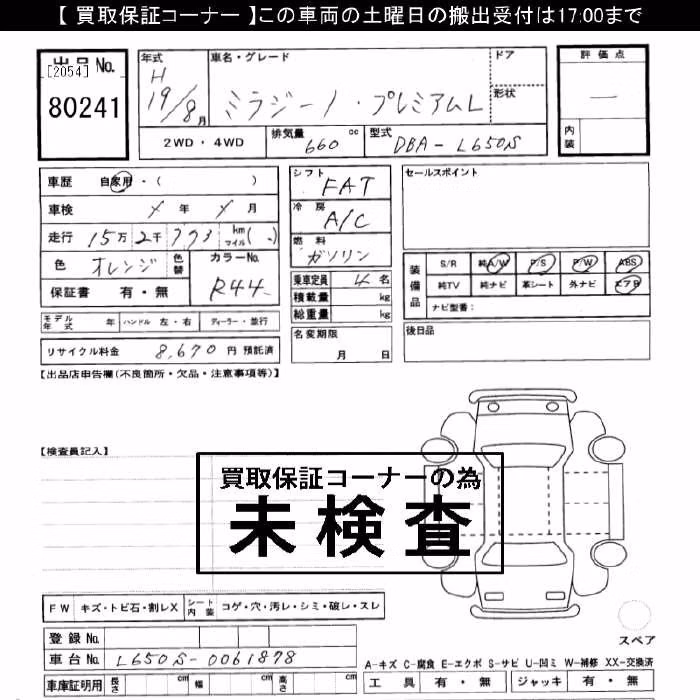 【 買取保証コーナー 】この車両の土曜日の搬出受付は17:00まで
出品 No.
[2054]
80241
年式 H 19/8月
車名・グレード ミラジーノ・プレミアムL
ドア
形状
2WD・4WD
排気量 660 cc
型式 DBA-L650S
評価点
—
内装
車歴 自家用・( )
車検 年 月
走行 15万 2千 773 km マイル ( )
色 オレンジ 色替
カラーNo. R44
保証書 有・無
シフト FAT
冷房 A/C
燃料 ガソリン
乗車定員 4 名
積載量 kg
総重量 kg
セールスポイント
装備品
S/R 純A/W P/S P/W ABS
純TV 純ナビ 革シート 外ナビ エアB
ナビ型番：
モデル年式 年 ハンドル 左・右 ディーラー・並行
リサイクル料金 8,670 円 預託済
名変期限 月 日
後日品
【出品店申告欄(不良箇所・欠品・注意事項等)】
【検査員記入】
買取保証コーナーの為
未検査
FW キズ・トビ石・割レX シート内装 コゲ・穴・汚レ・シミ・破レ・スレ
登録 No.
車台 No. L650S-0061878
車庫証明用 長さ cm 幅 cm 高さ cm
スペア
A-キズ C-腐食 E-エクボ S-サビ U-凹ミ W-補修 XX-交換済
工具 有・無 ジャッキ 有・無